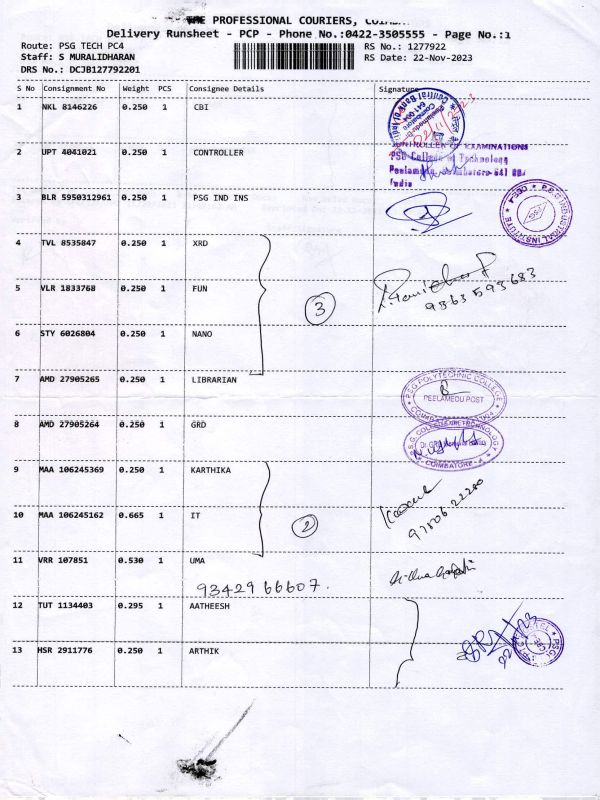 THE PROFESSIONAL COURIERS,
Delivery Runsheet - PCP - Phone No.:0422-3505555 - Page No.:1
Route: PSG TECH PC4 RS No.: 1277922
Staff: S MURALIDHARAN RS Date: 22-Nov-2023
DRS No.: DCJB127792201
S No Consignment No Weight PCS Consignee Details Signature
1 NKL 8146226 0.250 1 CBI
Central Bank of
641 004
2 UPT 4041021 0.250 1 CONTROLLER
CONTROLLER OF EXAMINATIONS
PSG College of Technology
Peelamedu, Coimbatore-641 004
India
3 BLR 5950312961 0.250 1 PSG IND INS
P.S.G INDUSTRIAL INSTITUTE
PSG
4 TVL 8535847 0.250 1 XRD
5 VLR 1833768 0.250 1 FUN
3
9363 593683
6 STY 6026804 0.250 1 NANO
7 AMD 27905265 0.250 1 LIBRARIAN
PSG POLYTECHNIC COLLEGE
PEELAMEDU POST
8 AMD 27905264 0.250 1 GRD
COIMBATORE
9 MAA 106245369 0.250 1 KARTHIKA
10 MAA 106245162 0.665 1 IT
2
11 VRR 107851 0.530 1 UMA
93429 66607.
12 TUT 1134403 0.295 1 AATHEESH
13 HSR 2911776 0.250 1 ARTHIK